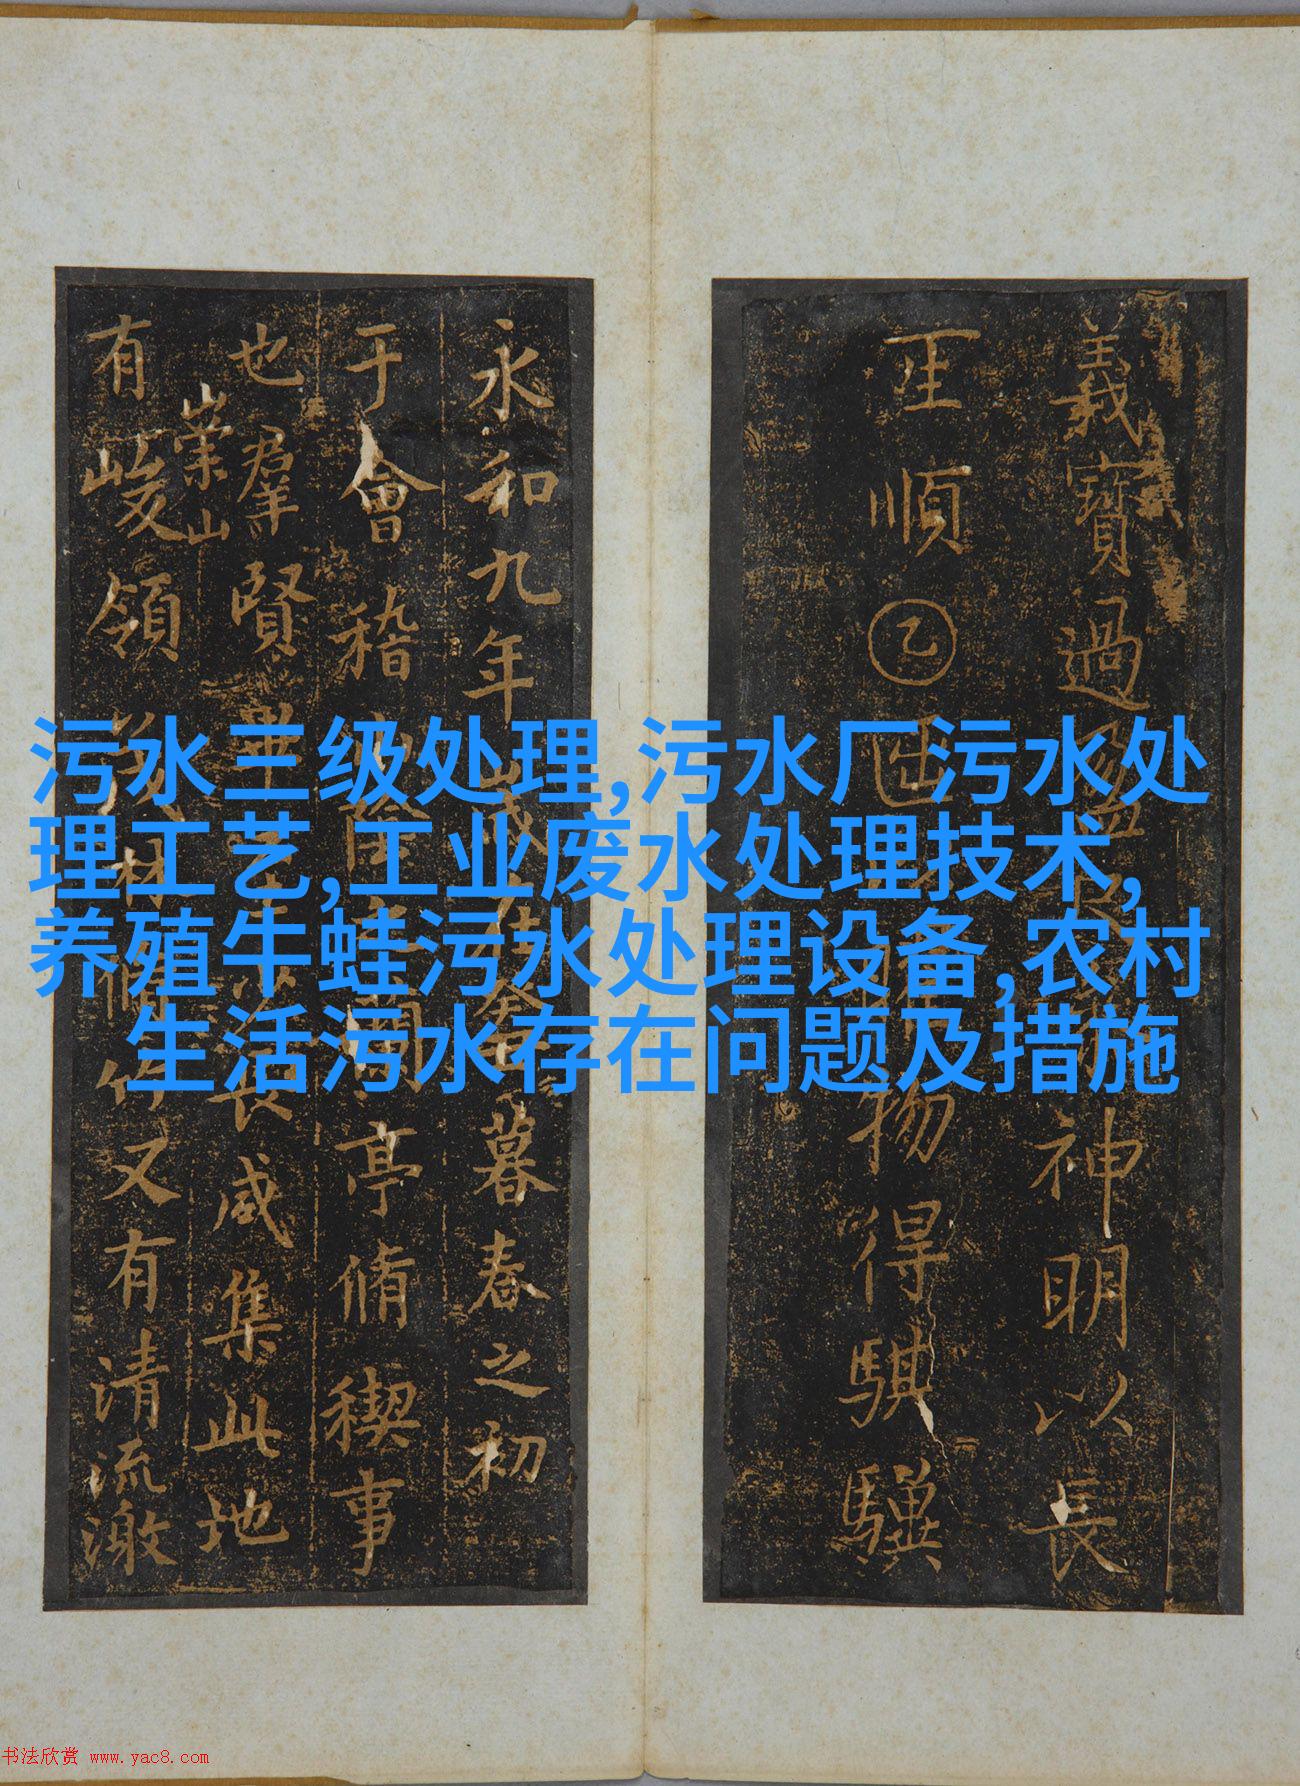 污水三级处理,污水厂污水处
理工艺,工业废水处理技术,
养殖牛蛙污水处理设备,农村
生活污水存在问题及措施
義寶過神明以長
順乙物得騏驥
永和九年歲在暮春之初
于會稽山陰之蘭亭脩禊事
也群賢畢至少長咸集此地
崇山
有峻領茂林脩竹又有清流激
书法欣赏 www.yac8.com